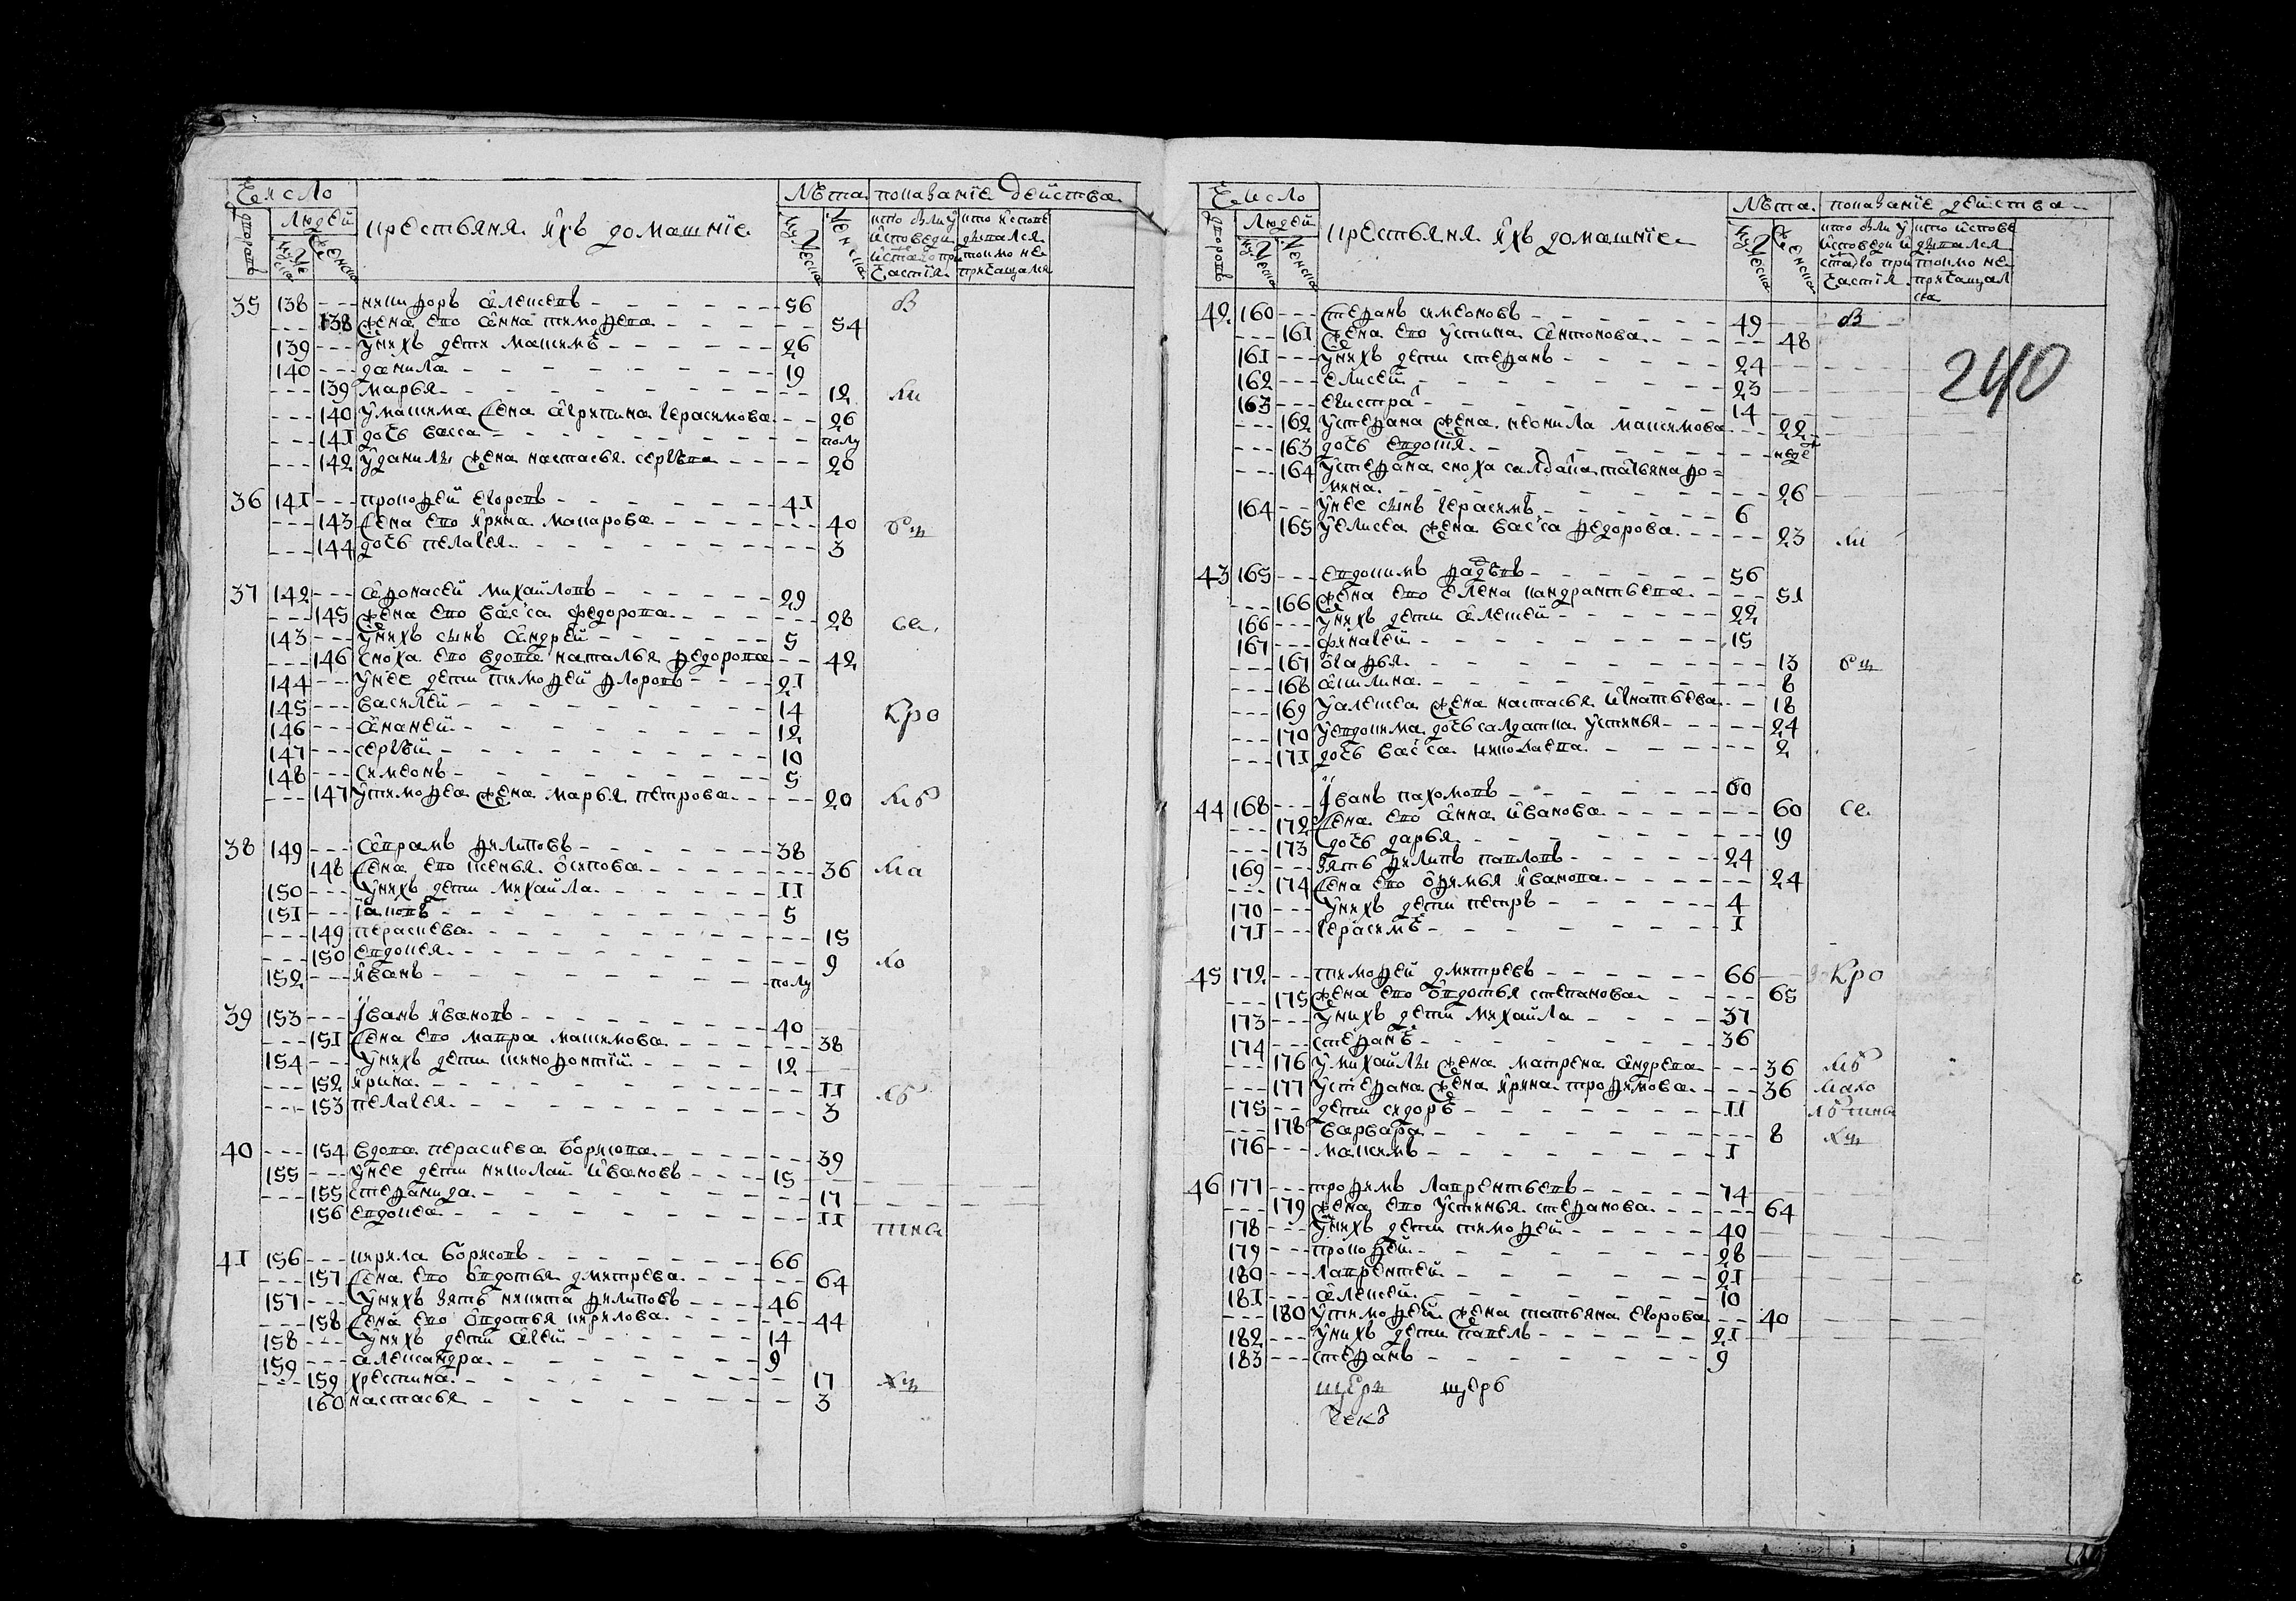 Число
Людей
крестьяня ихъ домашнїе
Лѣта показанїе действа
35 138 --- никифоръ алексеевъ - - - 56 в
--- 138 жена ево анна тимофева - - - 54
139 --- у нихъ дети максимъ - - - 26
140 --- данила - - - 19
--- 139 марья - - - 12 ки
--- 140 у максима жена агрипина герасимова - - 26
--- 141 дочь васса - - - полу
--- 142 у данилы жена настасья сергѣва - - - 20
36 141 --- прокофей егоровъ - - - 41
--- 143 жена ево ирина макарова - - - 40
--- 144 дочь пелагея - - - 3
37 142 --- афонасей михайловъ - - - 29
--- 145 жена ево васса федорова - - - 28 се
143 --- у нихъ сынъ андрей - - - 5
--- 146 сноха ево вдова наталья федорова - - 42
144 --- у нее дети тимофей флоровъ - - - 21
145 --- василей - - - 14 Кро
146 --- ананей - - - 12
147 --- сергѣй - - - 10
148 --- симеонъ - - - 5
--- 147 у тимофеа жена марья петрова - - - 20
38 149 --- аврамъ филиповъ - - - 38
148 жена ево ксенья осипова - - - 36 ка
150 --- у нихъ дети михайла - - - 11
151 --- iаковъ - - - 5
--- 149 параскева - - - 15
--- 150 евдокея - - - 9 ко
152 --- иванъ - - - полу
39 153 --- иванъ ивановъ - - - 40
--- 151 жена ево мавра максимова - - - 38
154 --- у нихъ дети ксинофонтїй - - - 12
--- 152 ирина - - - 11
--- 153 пелагея - - - 3
40 --- 154 вдова параскева борисова - - - 39
155 --- у нее дети николай ивановъ - - - 15
--- 155 стефанида - - - 17
156 евдокеа - - - 11
41 156 --- кирила борисовъ - - - 66
--- 157 жена ево овдотья дмитрева - - - 64
157 --- у нихъ зять никита филиповъ - - - 46
--- 158 жена ево овдотья кирилова - - - 44
158 --- у нихъ дети агей - - - 14
159 --- александра - - - 9
--- 159 хрестина - - - 17
160 настасья - - - 3
Число
Людей
крестьяня ихъ домашнїе
Лѣта показанїе действа
240
42 160 --- стефанъ симеоновъ - - - 49 в
--- 161 жена ево устина антонова - - - 48
161 --- у нихъ дети стефанъ - - - 24
162 --- елисей - - - 23
163 --- евистра - - - 14
--- 162 у стефана жена неонила максимова - - 22
--- 163 дочь евдотя - - - неде
--- 164 у стефана сноха салдака татьяна фо=
мина - - - 26
164 --- у нее сынъ герасимъ - - - 6
165 у елисеа жена васса федорова - - - 23 ки
43 165 --- евдокимъ фадѣевъ - - - 56
--- 166 жена ево елена кандратьева - - - 51
166 --- у нихъ дети алексей - - - 22
167 --- финагей - - - 15
--- 167 огафья - - - 13
--- 168 акилина - - - 8
--- 169 у алексеа жена настасья игнатьева - - 18
--- 170 у евдокима дочь салдатка устинья - - - 24
--- 171 дочь васса николаева - - - 2
44 168 --- иванъ пахомовъ - - - 60
--- 172 жена ево анна иванова - - - 60 се
--- 173 дочь дарья - - - 19
169 --- зять филипъ павловъ - - - 24
--- 174 жена ево офимья иванова - - - 24
170 --- у нихъ дети петръ - - - 4
171 --- герасимъ - - - 1
45 172 --- тимофей дмитревъ - - - 66 Кро
--- 175 жена ево овдотья степанова - - - 65
173 --- у нихъ дети михайла - - - 37
174 --- стефанъ - - - 36
--- 176 у михайлы жена матрена андрева - - - 36
--- 177 у стефана жена ирина трофимова - - - 36 како
175 -- дети сидоръ - - - 11
--- 178 варвара - - - 8
176 --- максимъ - - - 1
46 177 --- трофимъ лаврентьевъ - - - 74
--- 179 жена ево устинья стефанова - - - 64
178 --- у нихъ дети тимофей - - - 40
179 --- прокофей - - - 28
180 --- лаврентей - - - 21
181 --- алексей - - - 10
--- 180 у тимофей жена татьяна егорова - - 40
182 --- у нихъ дети павелъ - - - 21
183 --- стефанъ - - - 9